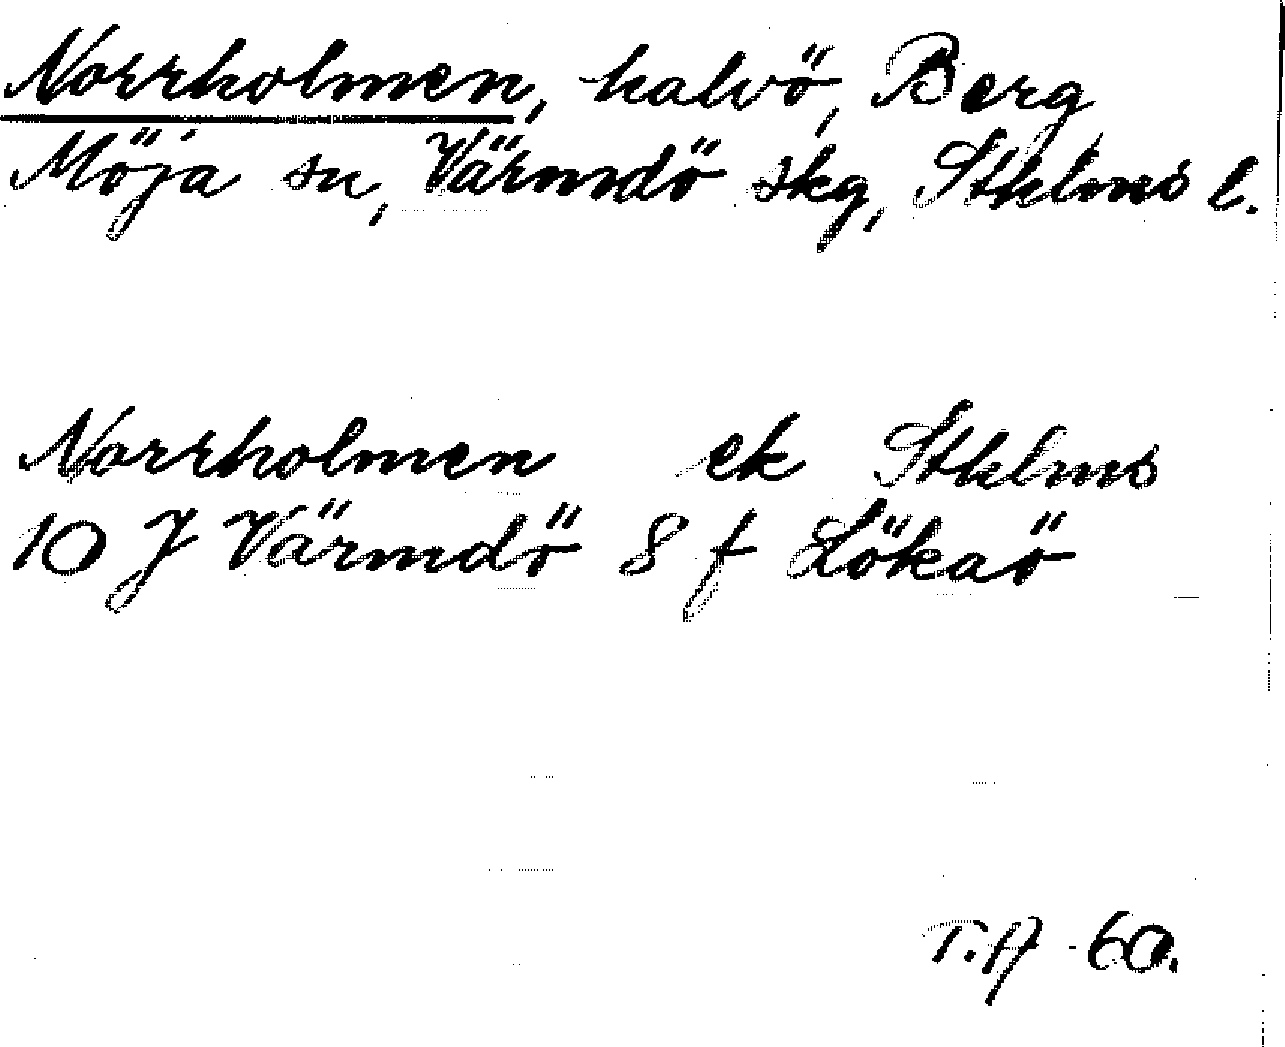 Norrholmen, halvö, Berg
Möja sn, Värmdö skg, Stklms l.
Norrholmen ek Stklms
10 J Värmdö 8 f Lökaö
T.A -60.